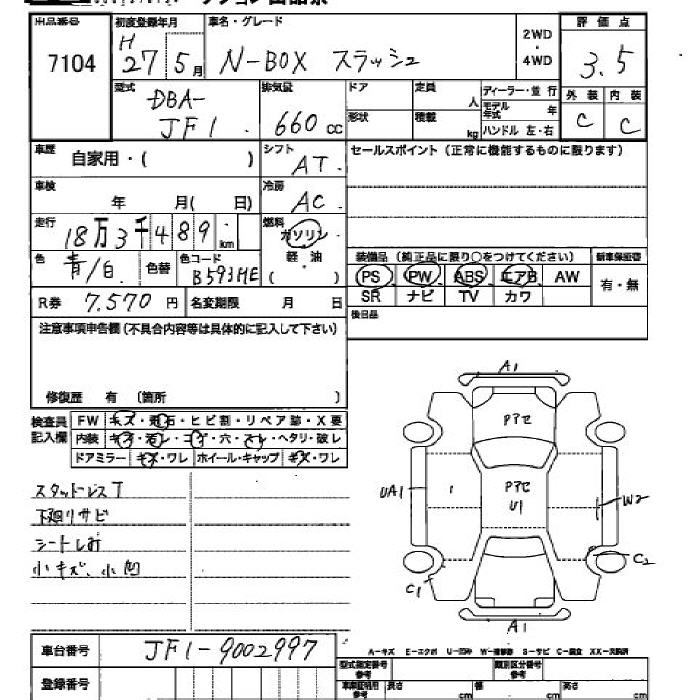 出品番号
7104
初度登録年月
H
27 5月
車名・グレード
N-BOX スラッシュ
2WD
・
4WD
評価点
3.5
外装 内装
C C
型式
DBA-
JF1
排気量
660 cc
ドア
定員
人
形状
積載
kg
ディーラー・並行
モデル年式 年
ハンドル 左・右
車歴
自家用・( )
シフト
AT
セールスポイント(正常に機能するものに限ります)
車検
年 月( 日)
冷房
AC
走行
18万3千489 km
燃料
ガソリン
軽・油
( )
色
青/白
色替
色コード
B593ME
装備品(純正品に限り○をつけてください)
新車保証書
PS PW ABS エアB AW
SR ナビ TV カワ
有・無
R券 7,570円
名変期限 月 日
後日品
注意事項申告欄(不具合内容等は具体的に記入して下さい)
修復歴 有 (箇所 )
検査員
記入欄
FW キズ・飛石・ヒビ割・リペア跡・X要
内装 キズ・汚レ・コゲ・穴・スレ・ヘタリ・破レ
ドアミラー キズ・ワレ ホイール・キャップ キズ・ワレ
スタッドレスT
下廻りサビ
シートしみ
小キズ、小凹
A1
Pアセ
UA1
Pアセ
U1
W2
C2
C1
A1
車台番号
JF1-9002997
A-キズ E-エクボ U-凹み W-補修跡 S-サビ C-腐食 XX-交換済
登録番号
型式指定番号
参考
類別区分番号
参考
車庫証明用
参考
長さ cm
幅 cm
高さ cm